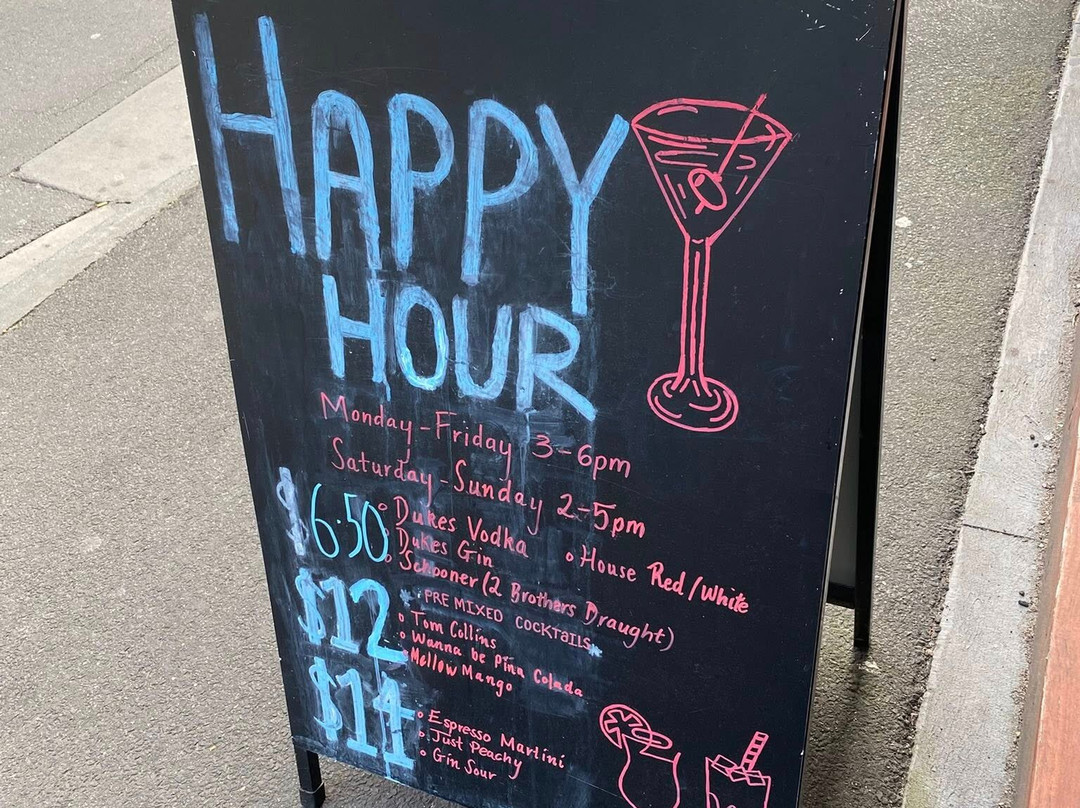 HAPPY
HOUR
Monday-Friday 3-6pm
Saturday-Sunday 2-5pm
$6.50
◦ Dukes Vodka
◦ Dukes Gin
◦ House Red/White
◦ Schooner (2 Brothers Draught)
* PRE MIXED COCKTAILS *
$12
◦ Tom Collins
◦ Wanna be piña Colada
◦ Mellow Mango
$14
◦ Espresso Martini
◦ Just Peachy
◦ Gin Sour